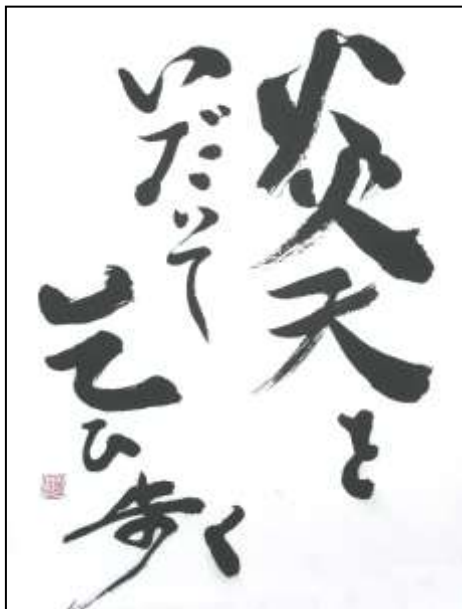 炎天を
いだいて
乞ひ歩く